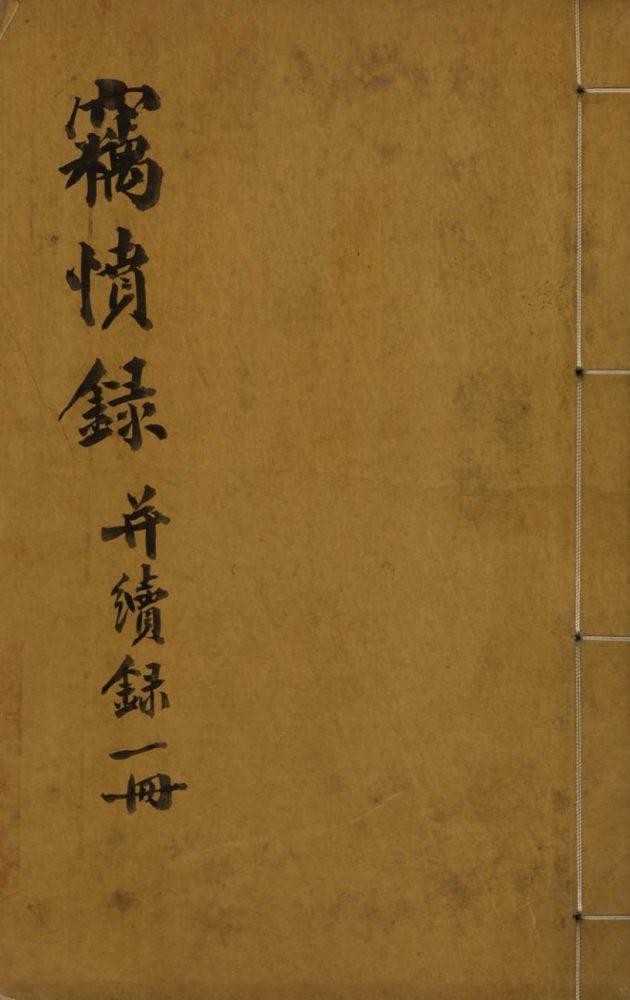 竊憤錄
并續錄一冊